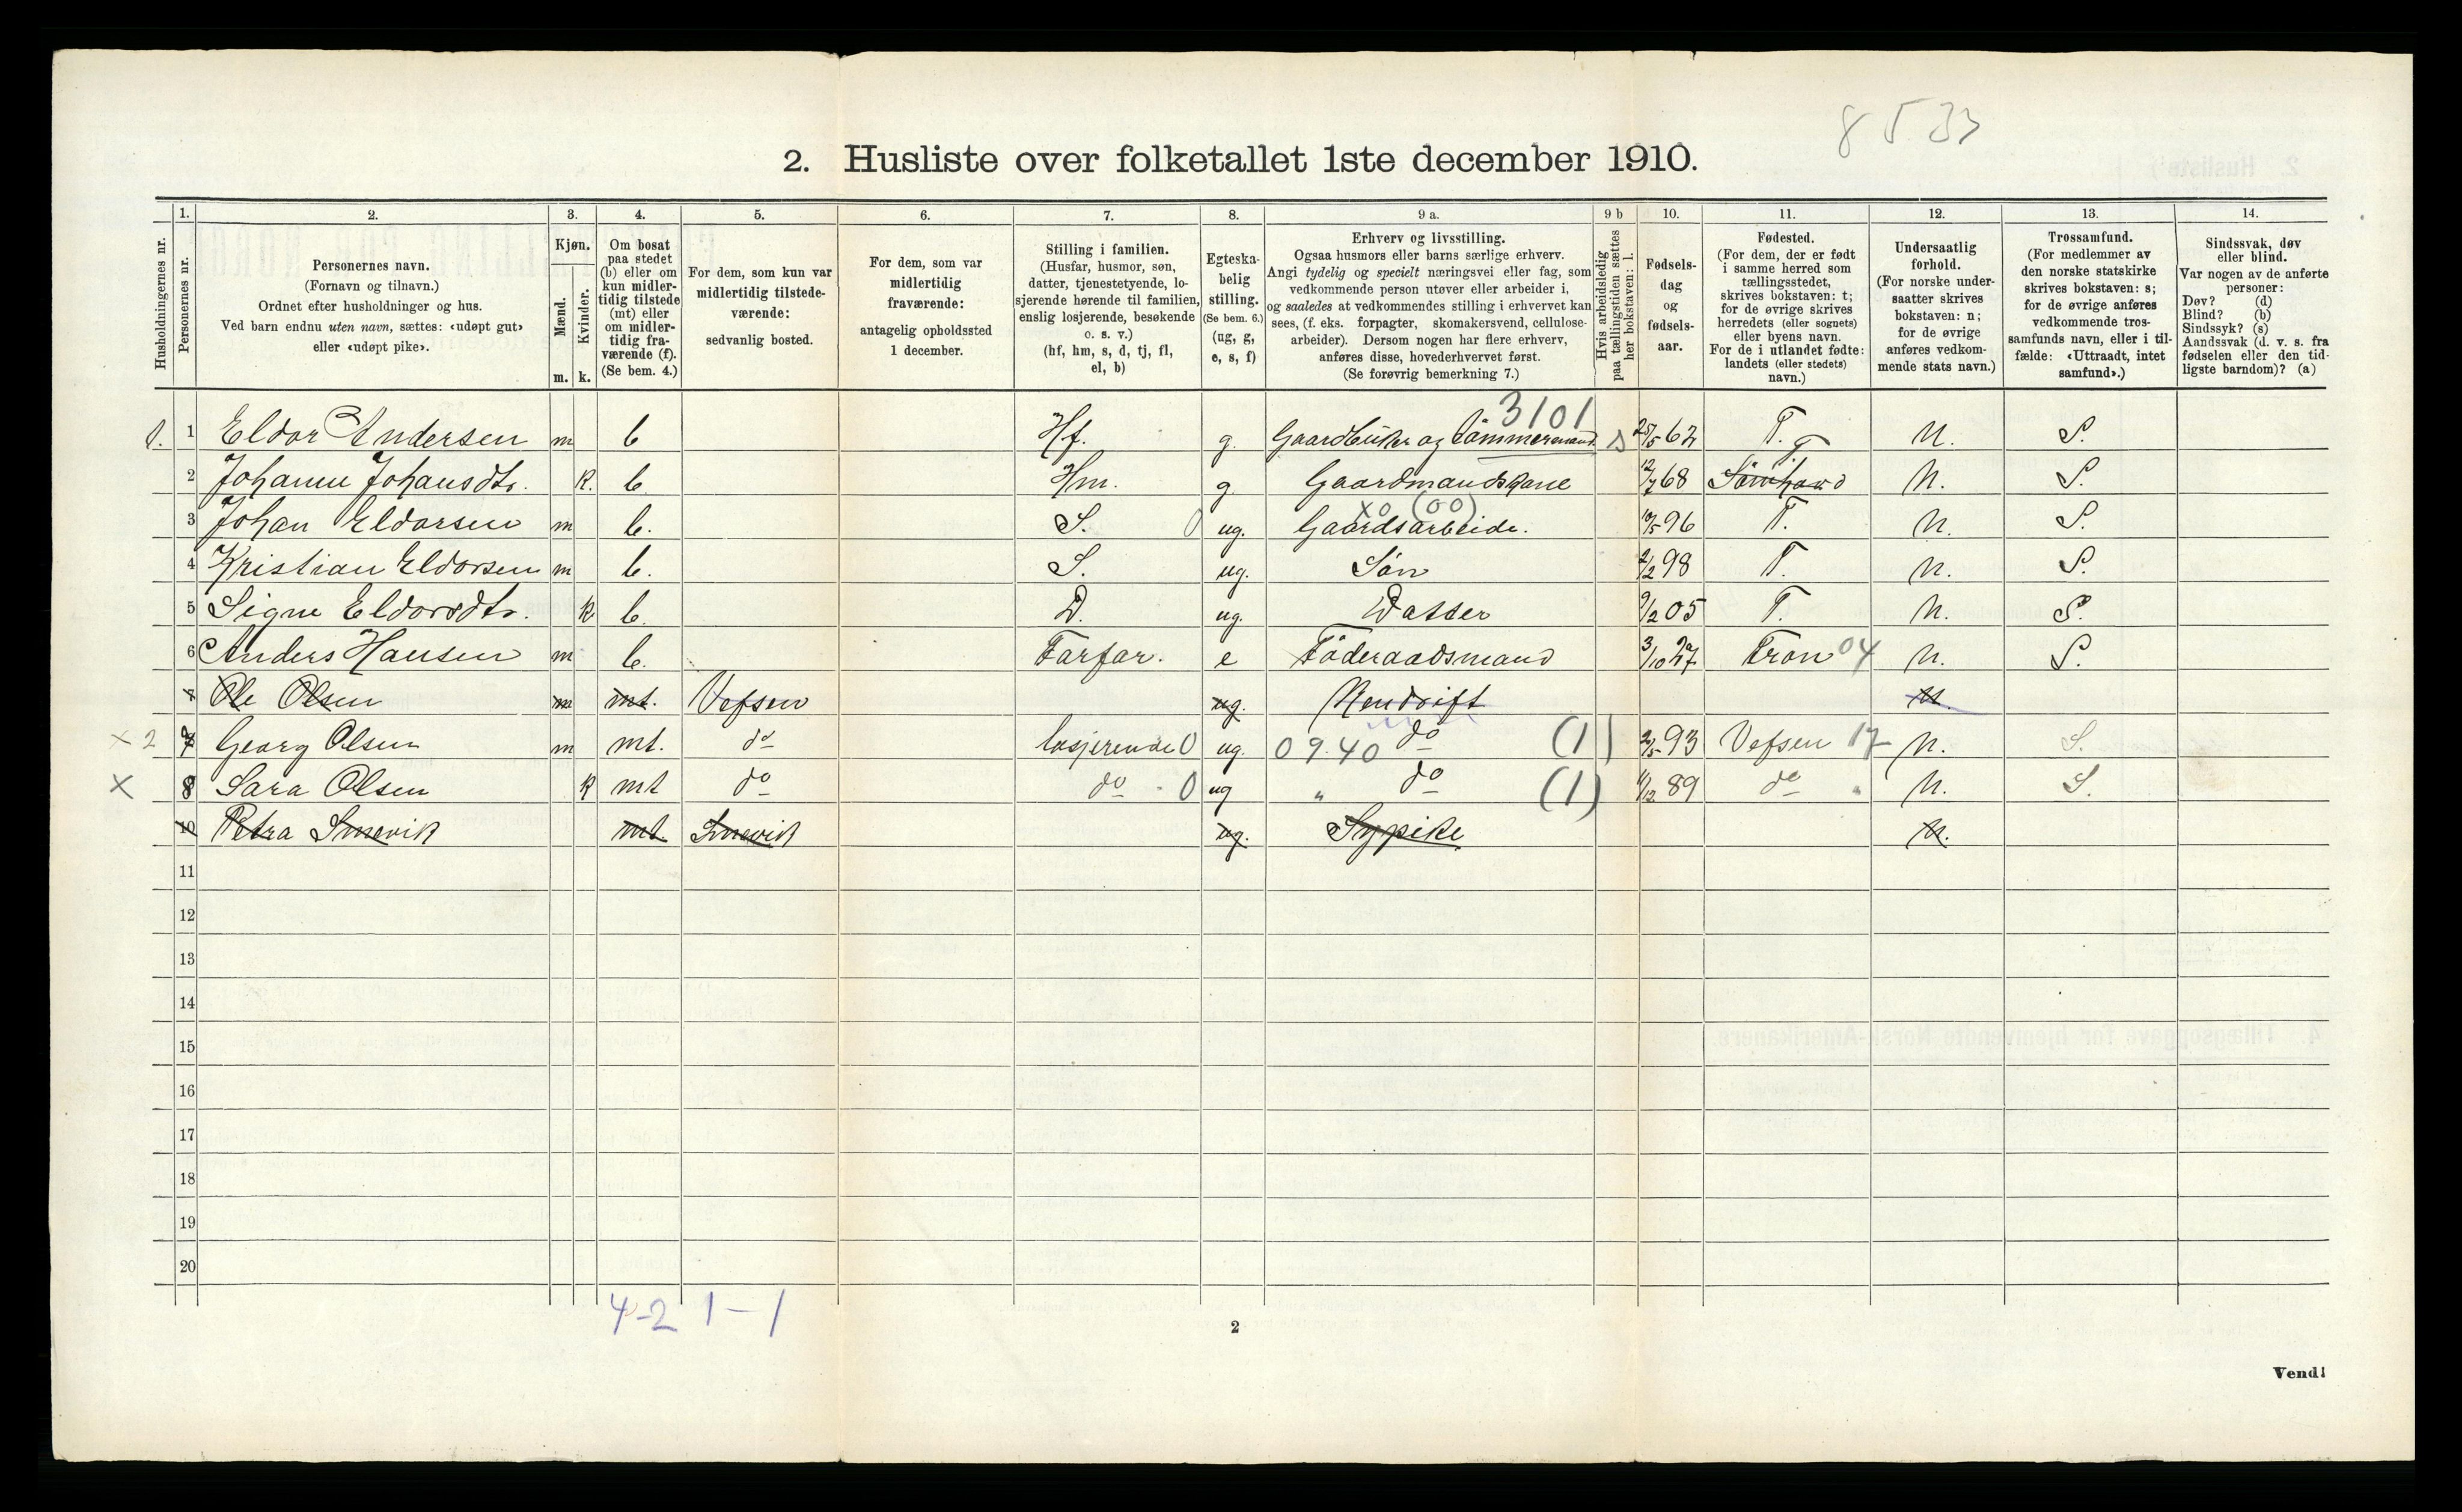 8 5. 33
2. Husliste over folketallet 1ste december 1910.
Husholdningernes nr. | 1. Personernes nr. | 2. Personernes navn. (Fornavn og tilnavn.) Ordnet efter husholdninger og hus. Ved barn endnu uten navn, sættes: «udøpt gut» eller «udøpt pike». | 3. Kjøn. Mænd. m. Kvinder. k. | 4. Om bosat paa stedet (b) eller om kun midlertidig tilstede (mt) eller om midlertidig fraværende (f). (Se bem. 4.) | 5. For dem, som kun var midlertidig tilstedeværende: sedvanlig bosted. | 6. For dem, som var midlertidig fraværende: antagelig opholdssted 1 december. | 7. Stilling i familien. (Husfar, husmor, søn, datter, tjenestetyende, losjerende hørende til familien, enslig losjerende, besøkende o. s. v.) (hf, hm, s, d, tj, fl, el, b) | 8. Egteskabelig stilling. (Se bem. 6.) (ug, g, e, s, f) | 9 a. Erhverv og livsstilling. Ogsaa husmors eller barns særlige erhverv. Angi tydelig og specielt næringsvei eller fag, som vedkommende person utøver eller arbeider i, og saaledes at vedkommendes stilling i erhvervet kan sees, (f. eks. forpagter, skomakersvend, cellulosearbeider). Dersom nogen har flere erhverv, anføres disse, hovederhvervet først. (Se forøvrig bemerkning 7.) | 9 b Hvis arbeidsledig paa tællingstiden sættes her bokstaven: l. | 10. Fødselsdag og fødselsaar. | 11. Fødested. (For dem, der er født i samme herred som tællingsstedet, skrives bokstaven: t; for de øvrige skrives herredets (eller sognets) eller byens navn. For de i utlandet fødte: landets (eller stedets) navn.) | 12. Undersaatlig forhold. (For norske undersaatter skrives bokstaven: n; for de øvrige anføres vedkommende stats navn.) | 13. Trossamfund. (For medlemmer av den norske statskirke skrives bokstaven: s; for de øvrige anføres vedkommende trossamfunds navn, eller i tilfælde: «Uttraadt, intet samfund».) | 14. Sindssvak, døv eller blind. Var nogen av de anførte personer: Døv? (d) Blind? (b) Sindssyk? (s) Aandssvak (d. v. s. fra fødselen eller den tidligste barndom)? (a)
3101
1. 1 Eldor Andersen m b Hf. g. Gaardbruker og Tømmermand s 25/5 62 T. N. S.
2 Johanne Johansdtr. k. b Hm. g. Gaardmandskone 12/7 68 T. N. S.
X0 (00)
3 Johan Eldorsen m b. S. 0 ug. Gaardsarbeide. 10/5 96 T. N. S.
4 Kristian Eldorsen m b. S. ug. Søn 2/2 98 T. N. S.
5 Signe Eldorsdtr. k b. D. ug. Datter 9/2 05 T. N. S.
6 Anders Hansen m b. Farfar. e Føderaadsmand 3/10 27 Tron 04 N. S.
7 Ole Olsen m mt. Vefsen ug. Rendrift N.
X 2 7 Georg Olsen m mt. do losjerende 0 ug. 09.40 do (1) 2/5 93 Vefsen 17 N. S.
X 8 Sara Olsen k mt do do 0 ug " do (1) 11/12 89 do " N. S.
10 Petra Smevik mt. Smevik ug. Sypike N.
11
12
13
14
15
16
17
18
19
20
4-2 1-1
2
Vend!